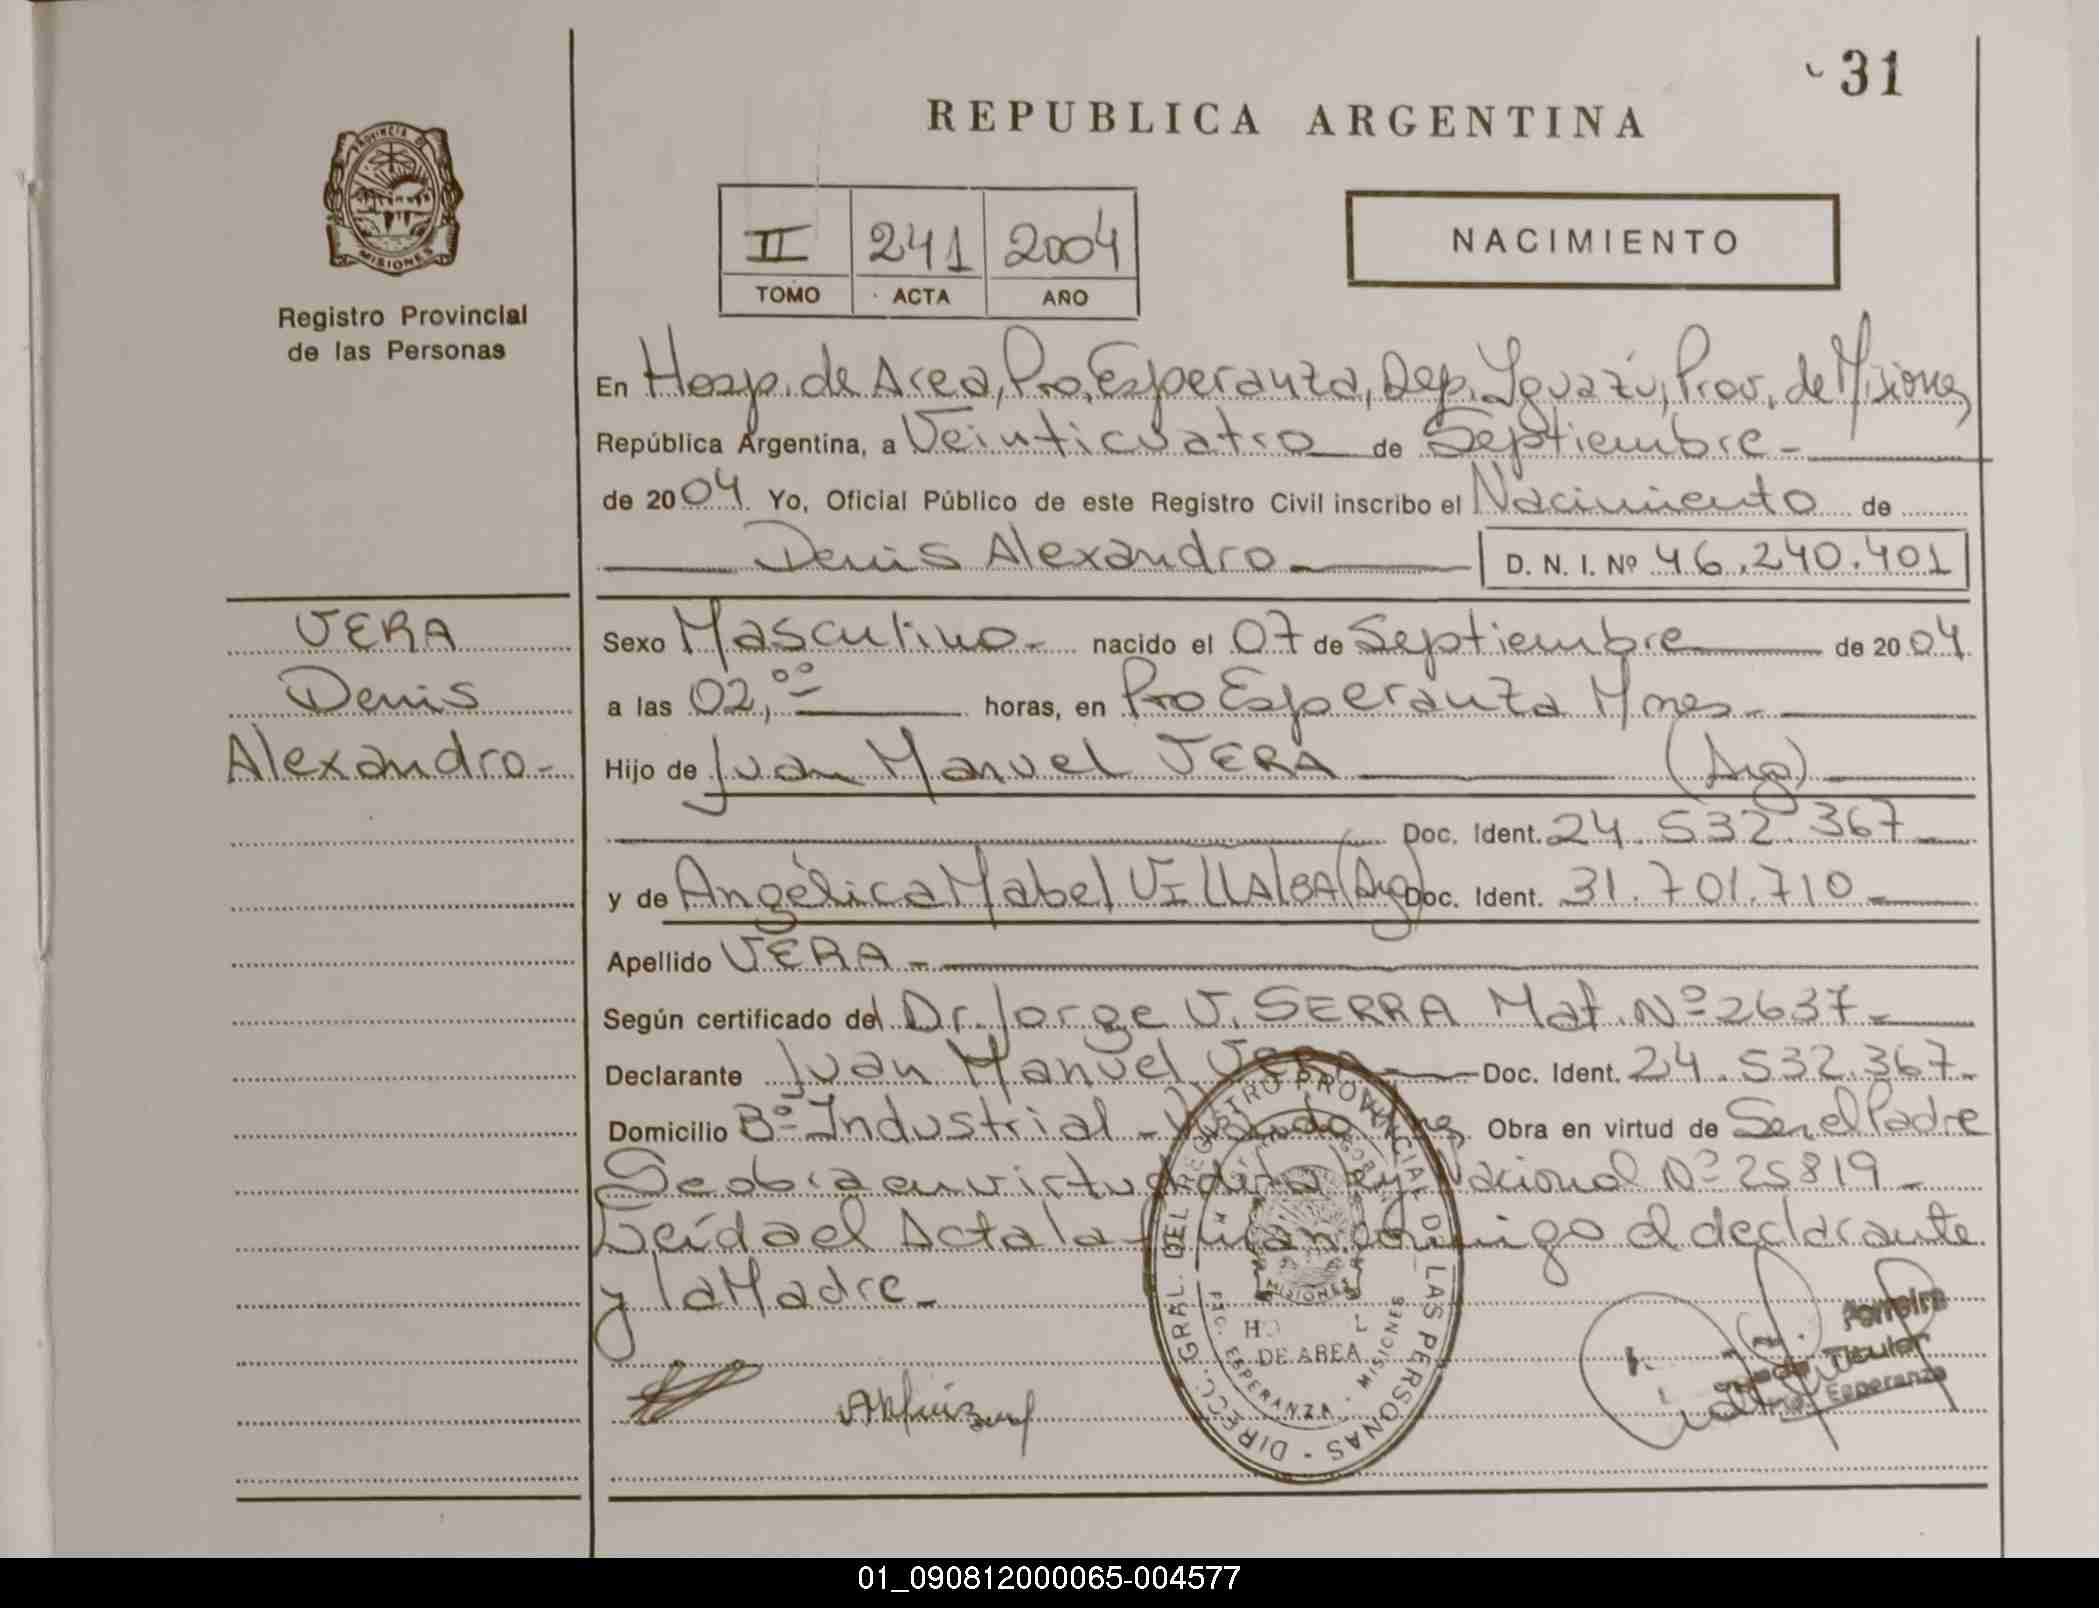 31
REPUBLICA ARGENTINA
PROVINCIA DE
MISIONES
Registro Provincial
de las Personas
II 241 2004
TOMO ACTA AÑO
NACIMIENTO
En Hosp. de Area, Pto. Esperanza, Dep. Iguazú, Prov. de Misiones
República Argentina, a Veinticuatro de Septiembre
de 2004 Yo, Oficial Público de este Registro Civil inscribo el Nacimiento de
Denis Alexandro D. N. I. Nº 46.240.401
VERA
Denis
Alexandro
Sexo Masculino nacido el 07 de Septiembre de 2004
a las 02,00 horas, en Pto Esperanza Mnes
Hijo de Juan Manuel VERA (Arg)
Doc. Ident. 24.532.367
y de Angélica Mabel VILLALBA (Arg) Doc. Ident. 31.701.710
Apellido VERA
Según certificado del Dr. Jorge V. SERRA Mat. Nº 2637
Declarante Juan Manuel VERA Doc. Ident. 24.532.367
Domicilio Bº Industrial Obra en virtud de Ser el Padre
Se obra en virtud de la Ley Nacional Nº 25819
Leída el Acta la firman conmigo el declarante
y la Madre
DIRECC. GRAL. DEL REGISTRO PROVINCIAL DE LAS PERSONAS
MISIONES
DE AREA
PTO. ESPERANZA - MISIONES
Ferreira
Titular
Pto. Esperanza
01_090812000065-004577